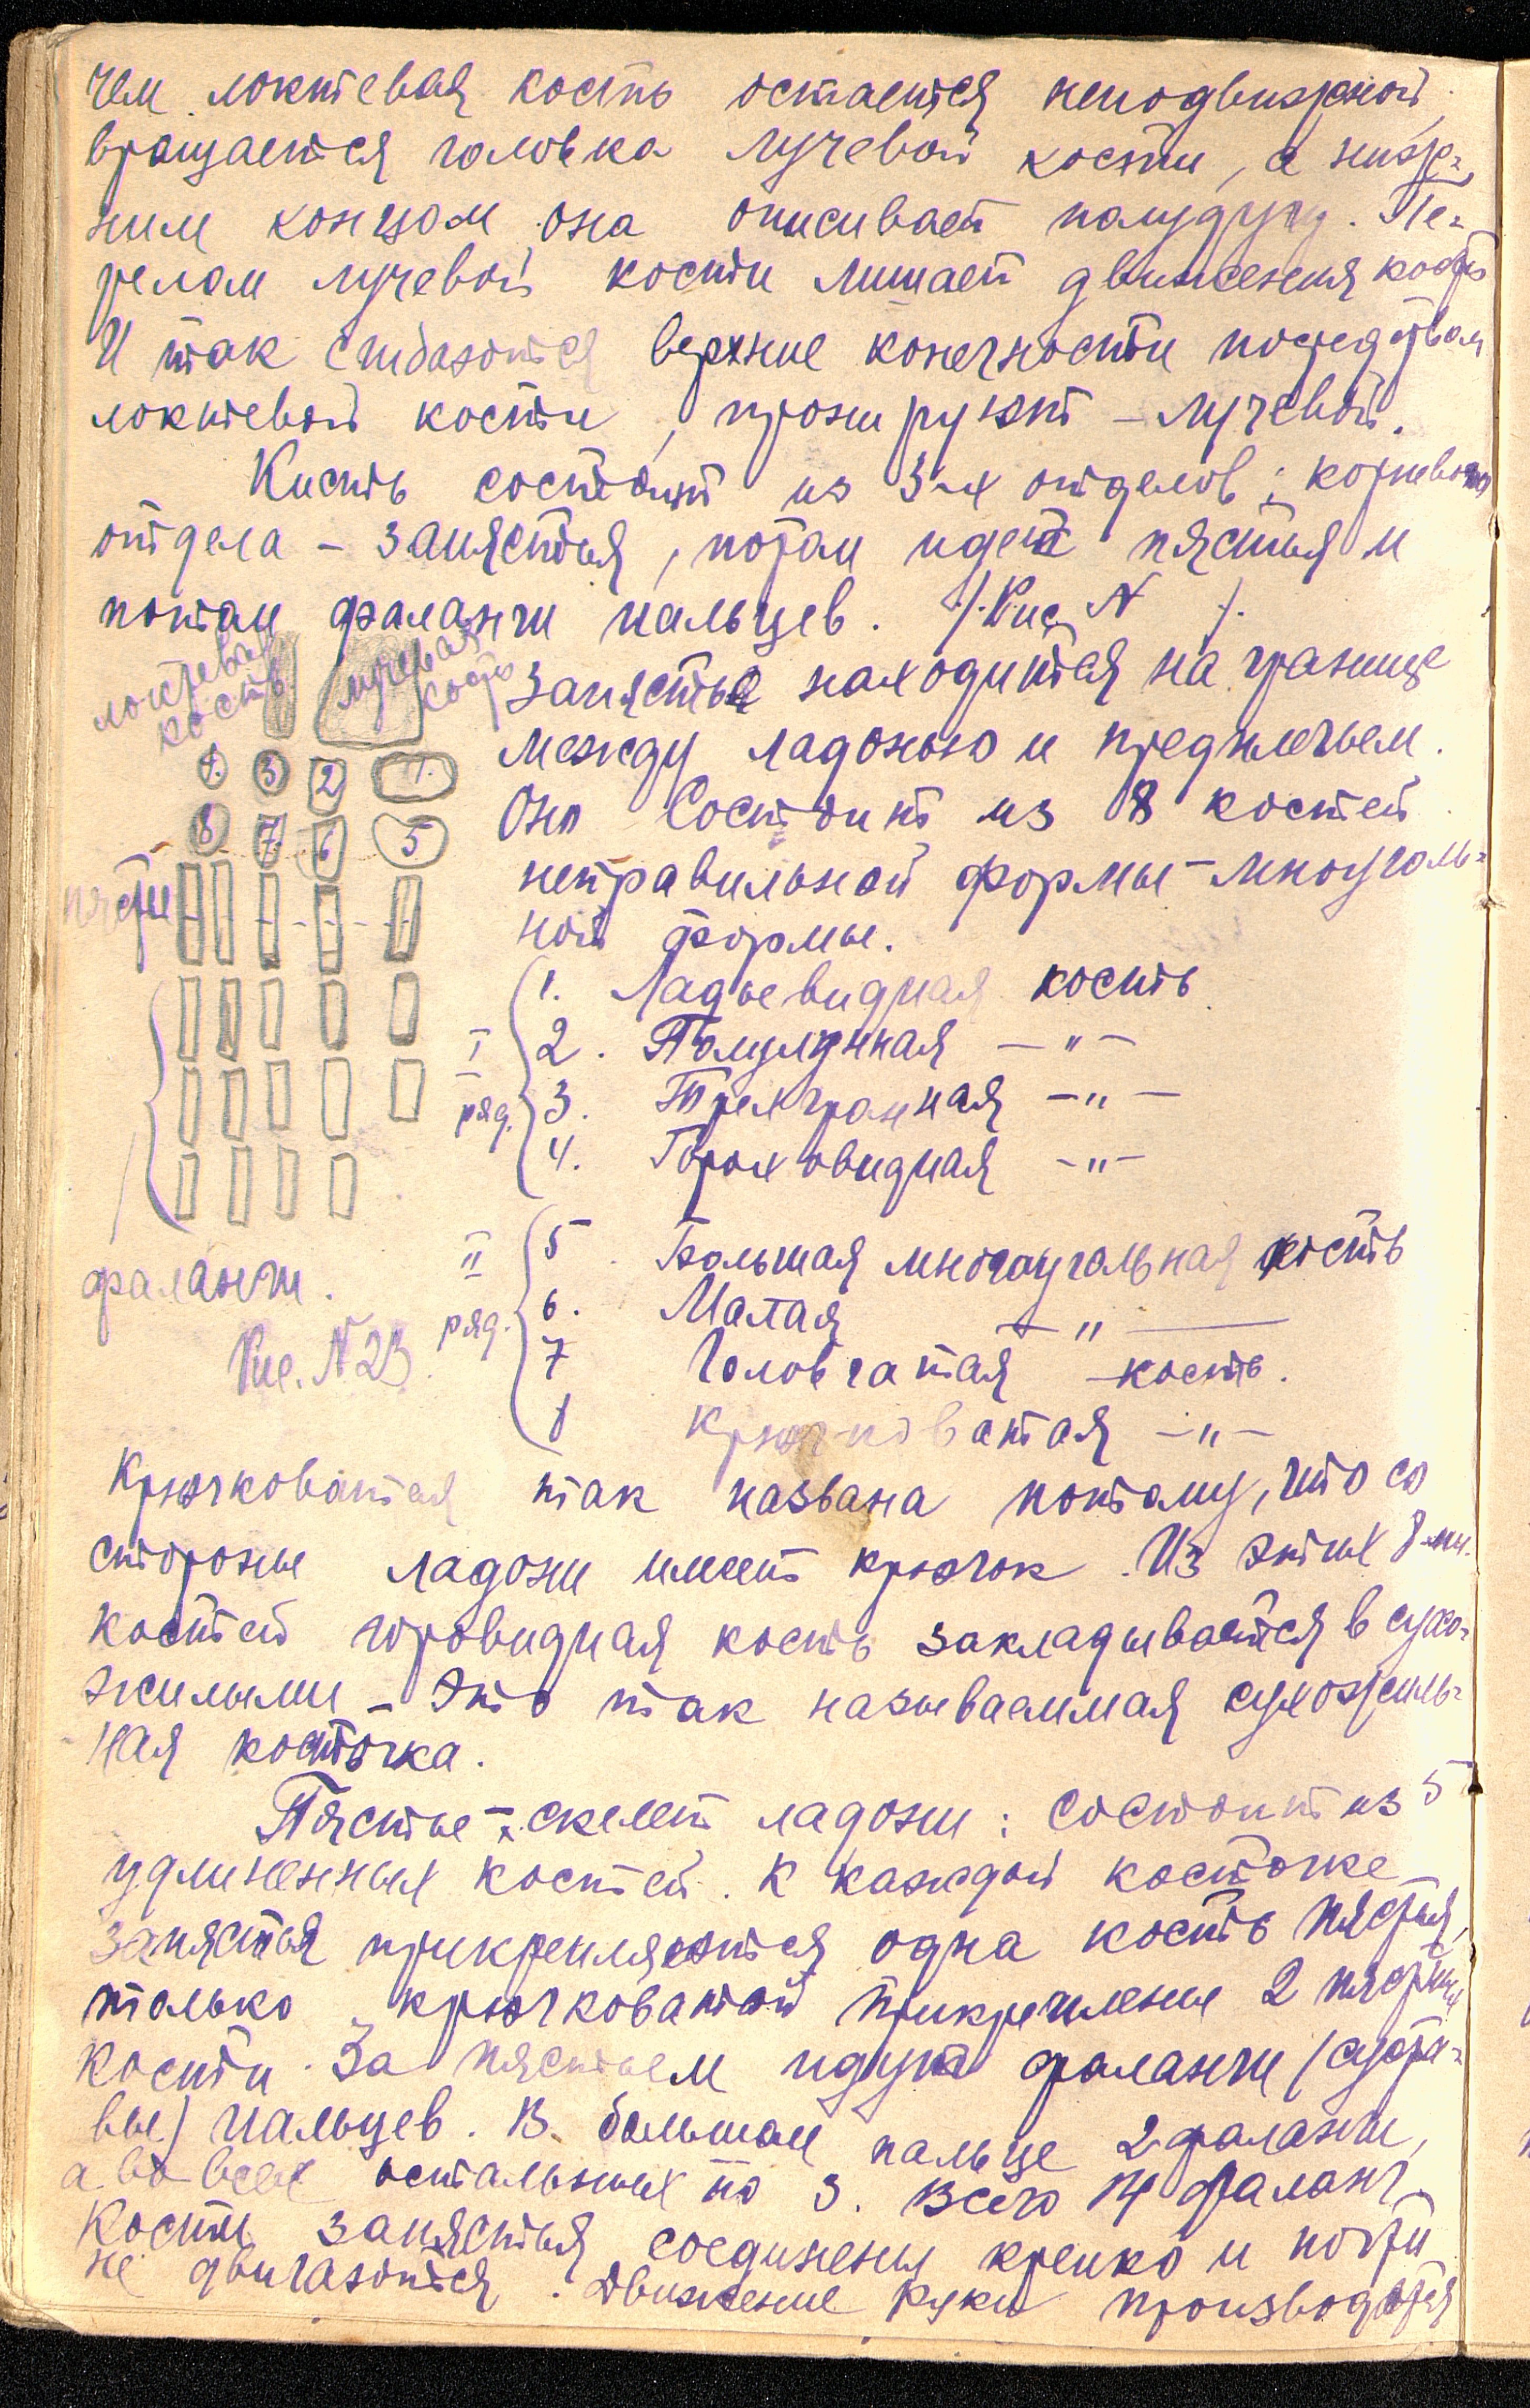 чем локтевая кость остается неподвижной,
вращается головка лучевой кости, а ниж-
ним концом она описывает полудугу. Пе-
релом лучевой кости лишает движения
И так сгибаются верхние конечности посредством
локтевой кости, пронируют – лучевой.
Кисть состоит из 3-х отделов: корневого
отдела – запястья, потом идет пястья и
потом фаланги пальцев. /Рис N /.
локтевая
кость
лучевая
кость
Запястье находится на границе
между ладонью и предплечьем.
Оно состоит из 8 костей
неправильной формы – многуголь-
ной формы.
4. 3 2 1.
8 7 6 5
пясти
I
ряд.
1. Ладьевидная кость
2. Полулунная –"–
3. Трехгранная –"–
4. Гороховидная –"–
II
ряд.
5. Большая многоугольная кость
6. Малая –"–
7 Головчатая – кость.
8 Крючковатая –"–
фаланги.
Рис. N 23.
Крючковатая так названа потому, что со
стороны ладони имеет крючок. Из этих 8-ми
костей горовидная кость закладывается в сухо-
жилыми – это так называемая сухожиль-
ная косточка.
Пястье – скелет ладони: состоит из 5
удлиненных костей. К каждой косточке
запястья прикрепляются одна кость пястья,
только крючковатой прикреплены 2 пястных
кости. За пястьем идут фаланги (суста-
вы) пальцев. В большом пальце 2 фаланги,
а во всех остальных по 3. Всего 14 фаланг.
Кости запястья соединены крепко и почти
не двигаются. Движение руки производятся